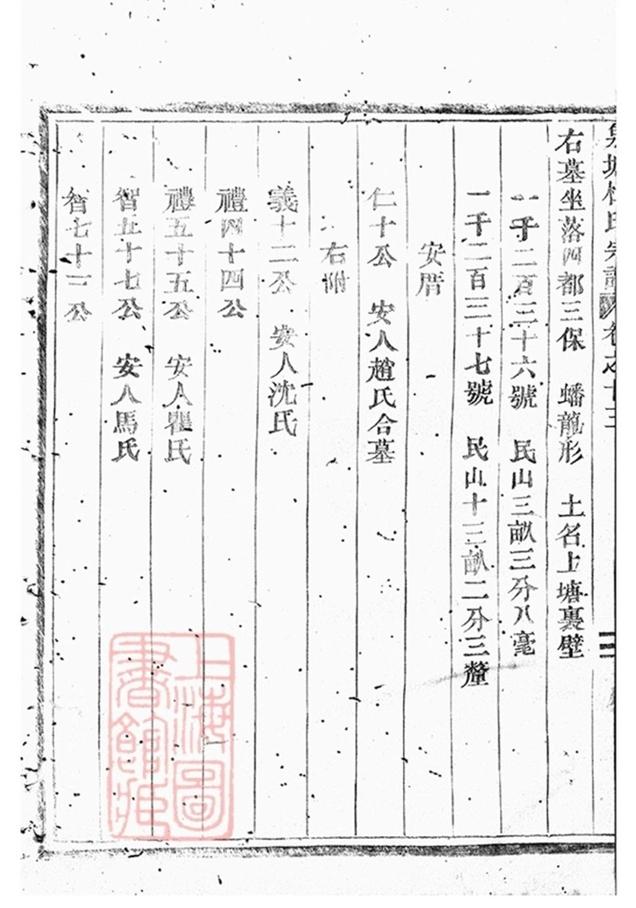 氏宗譜 卷之十三
右墓坐落四都三保 蟠龍形 土名上塘裏壁
一千二百三十六號 民山三畝三分八毫
一千二百三十七號 民山十三畝二分三釐
安厝
仁十公 安人趙氏合墓
右附
義十二公 安人沈氏
禮四十四公
禮五十五公 安人瞿氏
智五十七公 安人馬氏
智七十一公
上海圖
書館藏